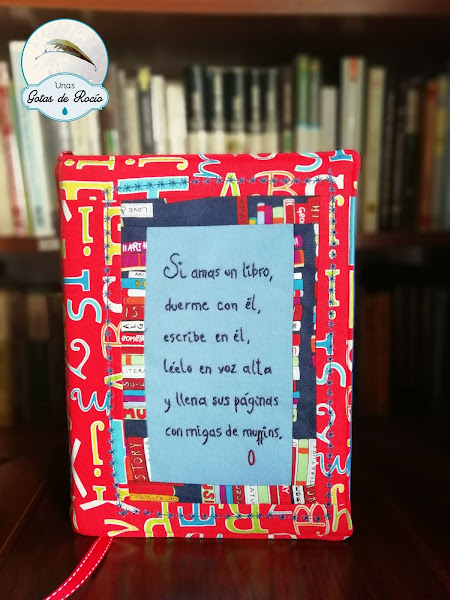 Unas
Gotas de Rocío
Si amas un libro,
duerme con él,
escribe en él,
léelo en voz alta
y llena sus páginas
con migas de muffins.
LOVE
HISTORY